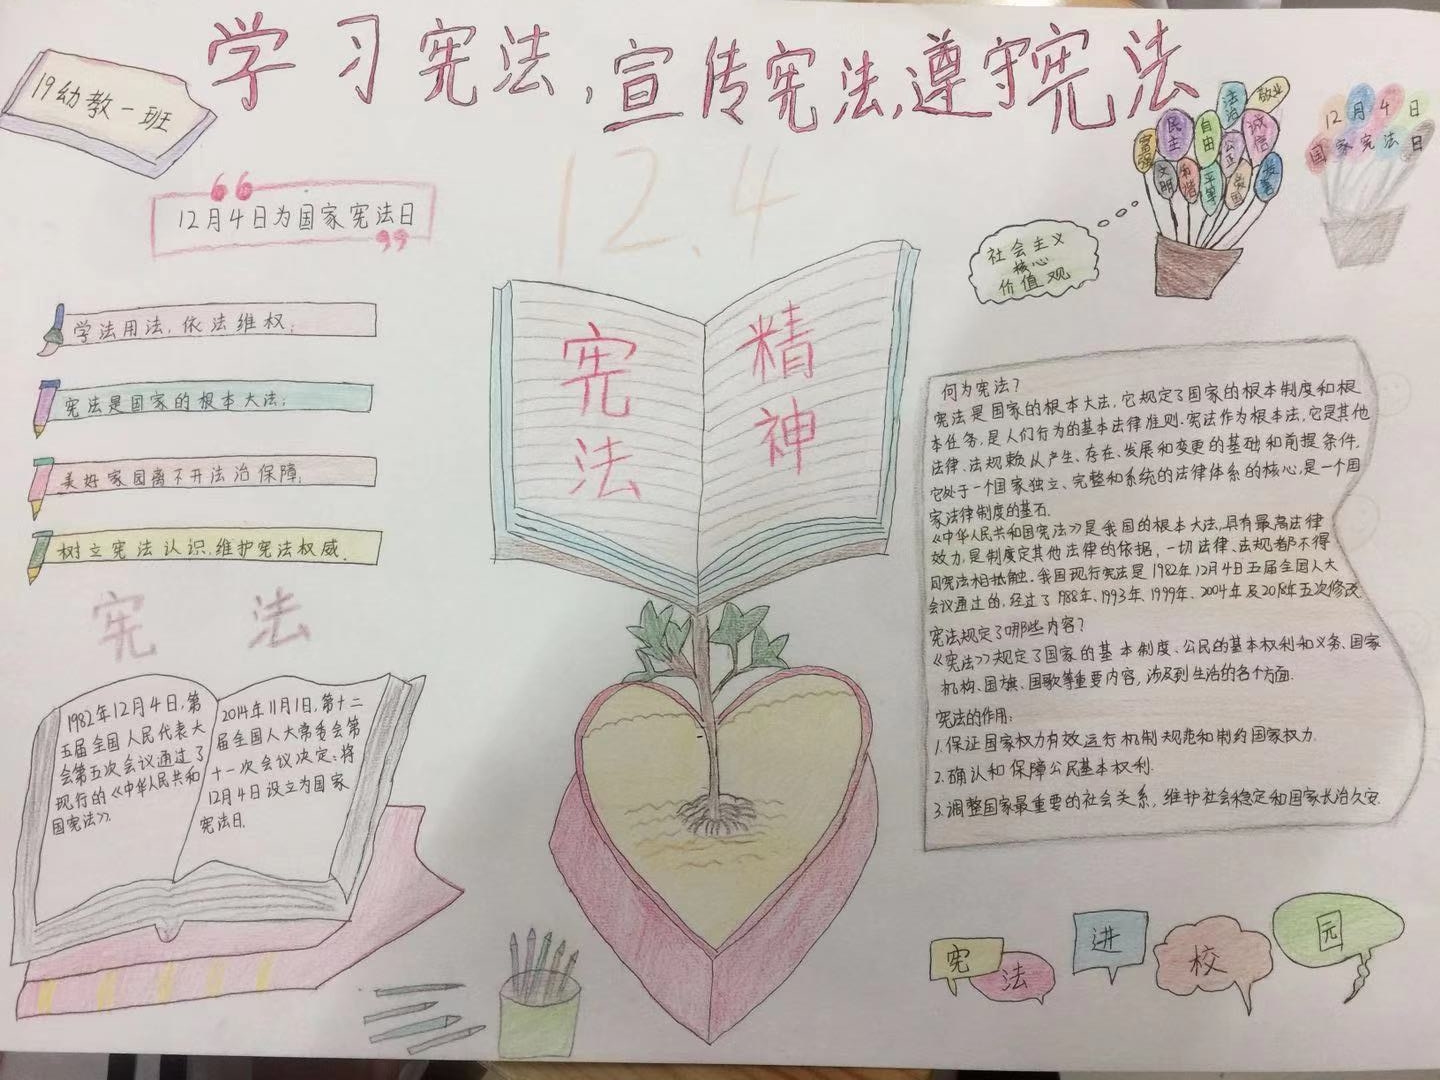 学习宪法,宣传宪法,遵守宪法
19幼教一班
12月4日为国家宪法日
12.4
学法用法,依法维权;
宪法是国家的根本大法;
美好家园离不开法治保障;
树立宪法认识,维护宪法权威.
宪法
1982年12月4日,第
五届全国人民代表大
会第五次会议通过了
现行的《中华人民共和
国宪法》.
2014年11月1日,第十二
届全国人大常委会第
十一次会议决定:将
12月4日设立为国家
宪法日.
宪法
精神
社会主义
核心
价值观
富强
民主
文明
和谐
自由
平等
公正
法治
爱国
敬业
诚信
友善
12月4日
国家宪法日
何为宪法?
宪法是国家的根本大法,它规定了国家的根本制度和根
本任务,是人们行为的基本法律准则.宪法作为根本法,它是其他
法律、法规赖从产生、存在、发展和变更的基础和前提条件.
它处于一个国家独立、完整和系统的法律体系的核心,是一个国
家法律制度的基石.
《中华人民共和国宪法》是我国的根本大法,具有最高法律
效力,是制度定其他法律的依据,一切法律、法规都不得
同宪法相抵触.我国现行宪法是1982年12月4日五届全国人大
会议通过的,经过了1988年、1993年、1999年、2004年及2018年五次修改.
宪法规定了哪些内容?
《宪法》规定了国家的基本制度、公民的基本权利和义务、国家
机构、国旗、国歌等重要内容,涉及到生活的各个方面.
宪法的作用:
1.保证国家权力有效运行机制规范和制约国家权力.
2.确认和保障公民基本权利.
3.调整国家最重要的社会关系,维护社会稳定和国家长治久安.
宪法进校园